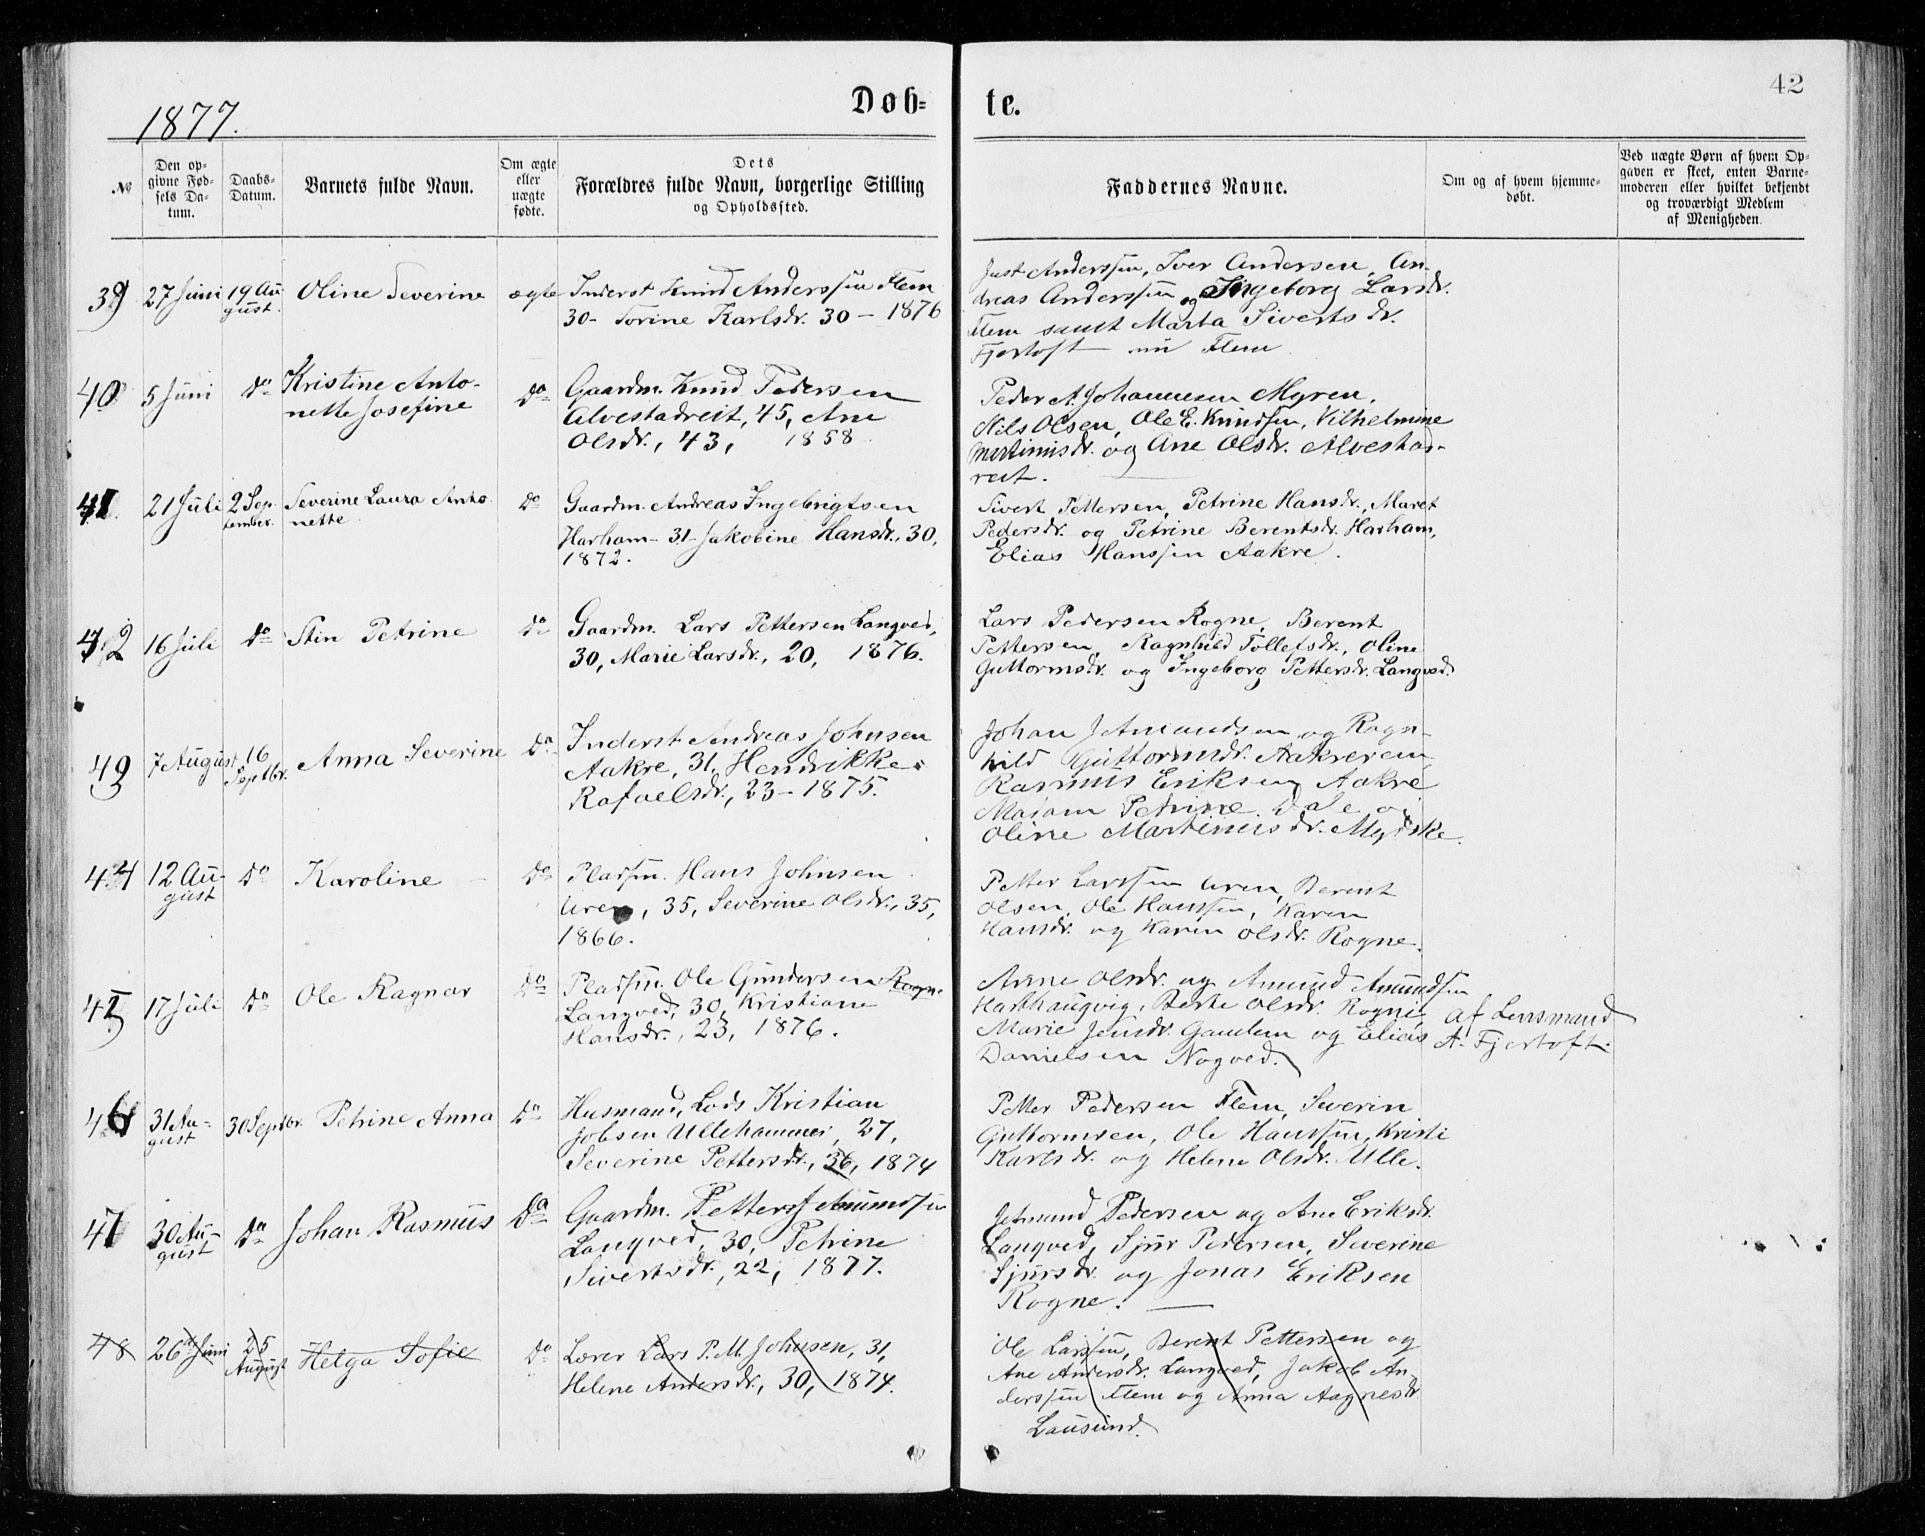 42
1877.
Døb-
te.
№
Den op-
givne Fød-
sels Da-
tum.
Daabs-
Datum.
Barnets fulde Navn.
Om ægte
eller
uægte
fødte.
Dets
Forældres fulde Navn, borgerlige Stilling
og Opholdssted.
Faddernes Navne.
Om og af hvem hjemme-
døbt.
Ved uægte Børn af hvem Op-
gaven er skeet, enten Barne-
moderen eller hvilket bekjendt
og troværdigt Medlem
af Menigheden.
39
27 Juni
19 Au-
gust.
Oline Severine
ægte
Inderst Knud Anderssen Flem
30- Torine Karlsdr. 30 - 1876
Just Anderssen, Iver Andersen, An-
dreas Anderssen og Ingeborg Larsdr.
Flem samt Marta Siverts dr.
Fjertoft nu Flem
40
5 Juni
do
Kristine Anto-
nette Josefine
do
Gaardm. Knud Pedersen
Alvestadreit, 45, Ane
Olsdr., 43, 1858
Peder A. Johannesen Myren,
Nils Olsen, Ole E. Knudsen, Vilhelmine
Martinusdr. og Ane Olsdr. Alvestad-
reit.
41
21 Juli
2 Sep-
tember.
Severine Laura Anto-
nette
do
Gaardm. Andreas Ingebrigtsen
Harham- 31- Jakobine Hansdr., 30,
1872.
Sivert Pettersen, Petrine Hansdr., Maret
Pedersdr. og Petrine Berentsdr. Harham,
Elias Hanssen Aakre.
42
16 Juli
do
Stin Petrine
do
Gaardm. Lars Pettersen Langved,
30, Marie Larsdr., 20, 1876.
Lars Pedersen Rogne, Berent
Pettersen, Ragnhild Tollefsdr., Oline
Guttormsdr. og Ingeborg Pettersdr. Langved.
43
7 August
16
Septbr.
Anna Severine
do
Inderst Andreas Johnsen
Aakre, 31, Hendrikke
Rafaelsdr., 23 - 1875.
Johan J. Amundsen og Ragn-
hild Guttormsdr. Aakrerem
Rasmus Eriksen Aakre
Madam Petrine Dale og
Oline Martinus dr. Myrske.
44
12 Au-
gust
do
Karoline
do
Pladsm. Hans Johnsen
Uren, 35, Severine Olsdr., 35,
1866.
Petter Larssen Uren, Berent
Olsen, Ole Hanssen, Karen
Hansdr. og Karen Olsdr. Rogne.
45
17 Juli
do
Ole Ragnar
do
Pladsm. Ole Gundersen Rogne
Langved, 30, Kristiane
Hansdr., 23, 1876.
Anne Olsdr. og Amund Amundsen
Hakhaugvig, Berte Olsdr. Rogne,
Marie Jensdr. Gamlem og Elias
Danielsen Nogved.
Af Lensmand
A. Fjertoft.
46
31 Au-
gust
30 Septbr.
Petrine Anna
do
Husmand, Lods Kristian
Jobsen Ullehammer, 27,
Severine Pettersdr., 36, 1874
Petter Pedersen Flem, Severin
Guttormsen, Ole Hanssen, Kristi
Karlsdr. og Helene Olsdr. Ulle.
47
30 Au-
gust
do
Johan Rasmus
do
Gaardm. Petter J. Amundsen
Langved, 30, Petrine
Sivertsdr., 22, 1877.
Amund Pedersen og Ane Eriksdr.
Langved, Sjur Pedersen, Severine
Sjursdr. og Jonas Eriksen
Rogne.
48
26de Juni
25
August
Helga Sofie
do
Lærer Lars P. M. Johnsen, 31,
Helene Andersdr., 30, 1874.
Ole Larssen, Berent Pettersen og
Ane Andersdr. Langved, Jakob An-
derssen Flem og Anna Aagnesdr.
Lausund.